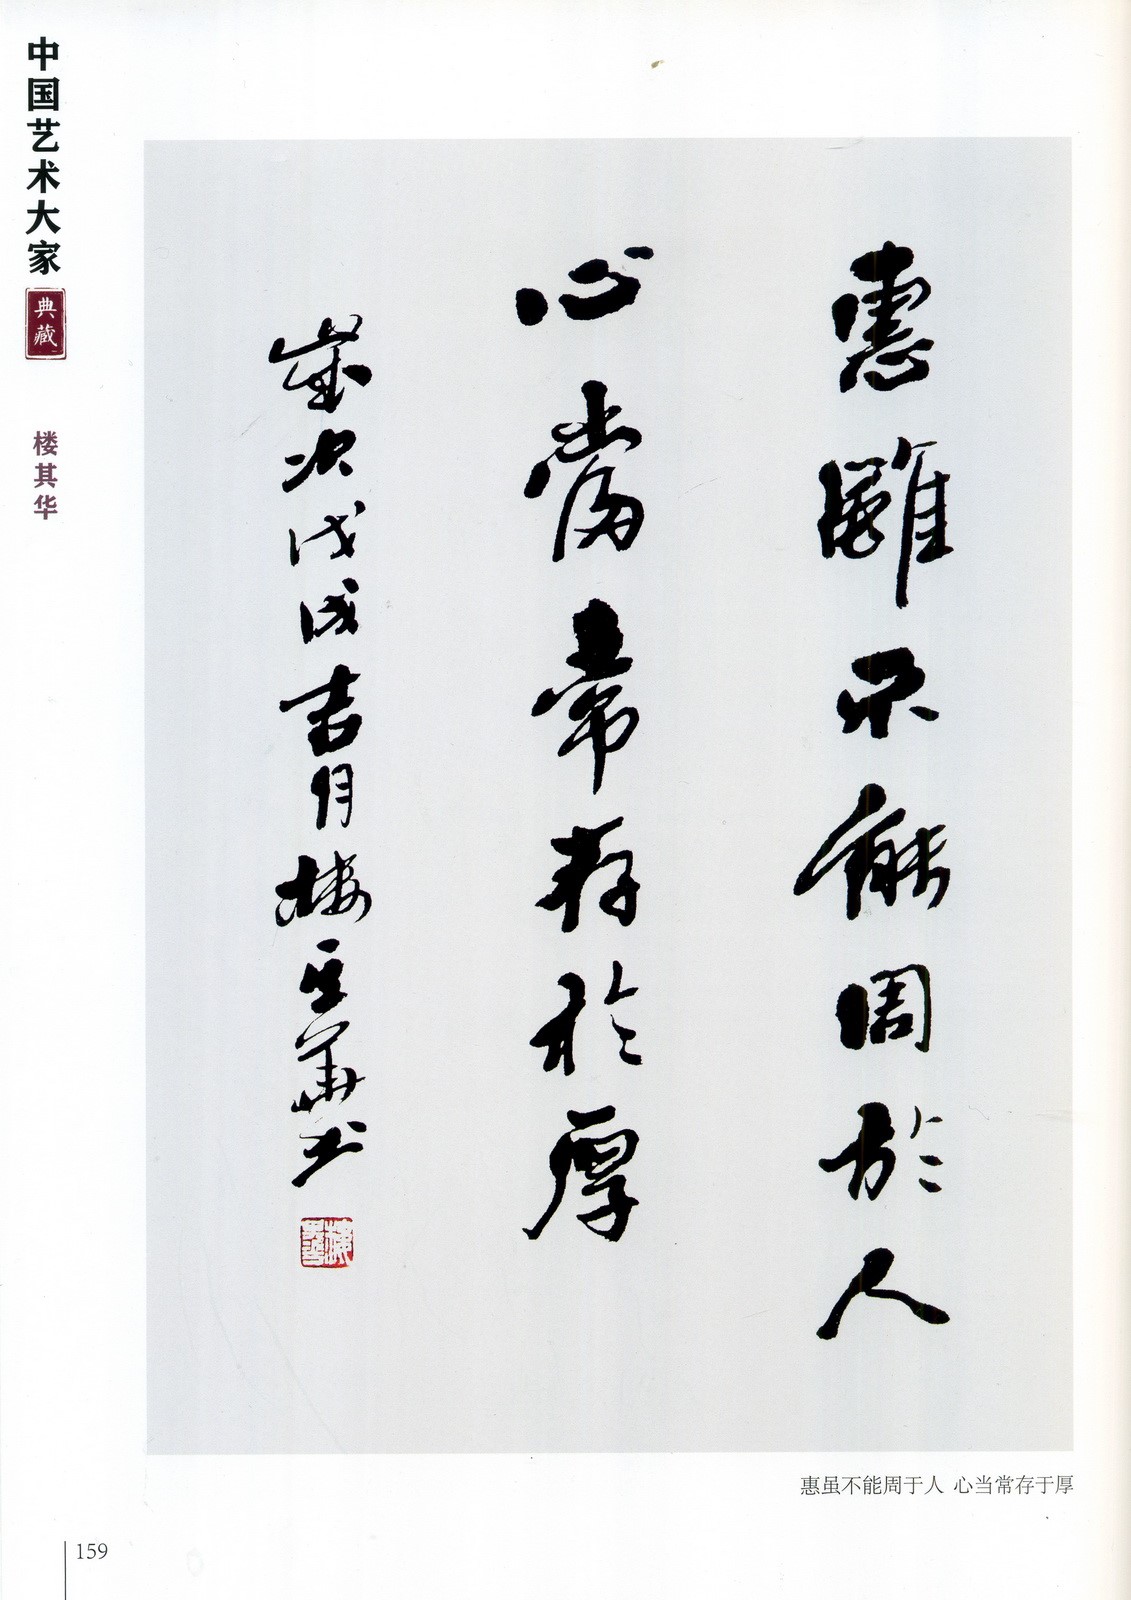 中国艺术大家
典藏
楼其华
惠雖不能周於人
心當常存於厚
歲次戊戌吉月樓其華書
惠虽不能周于人 心当常存于厚
159